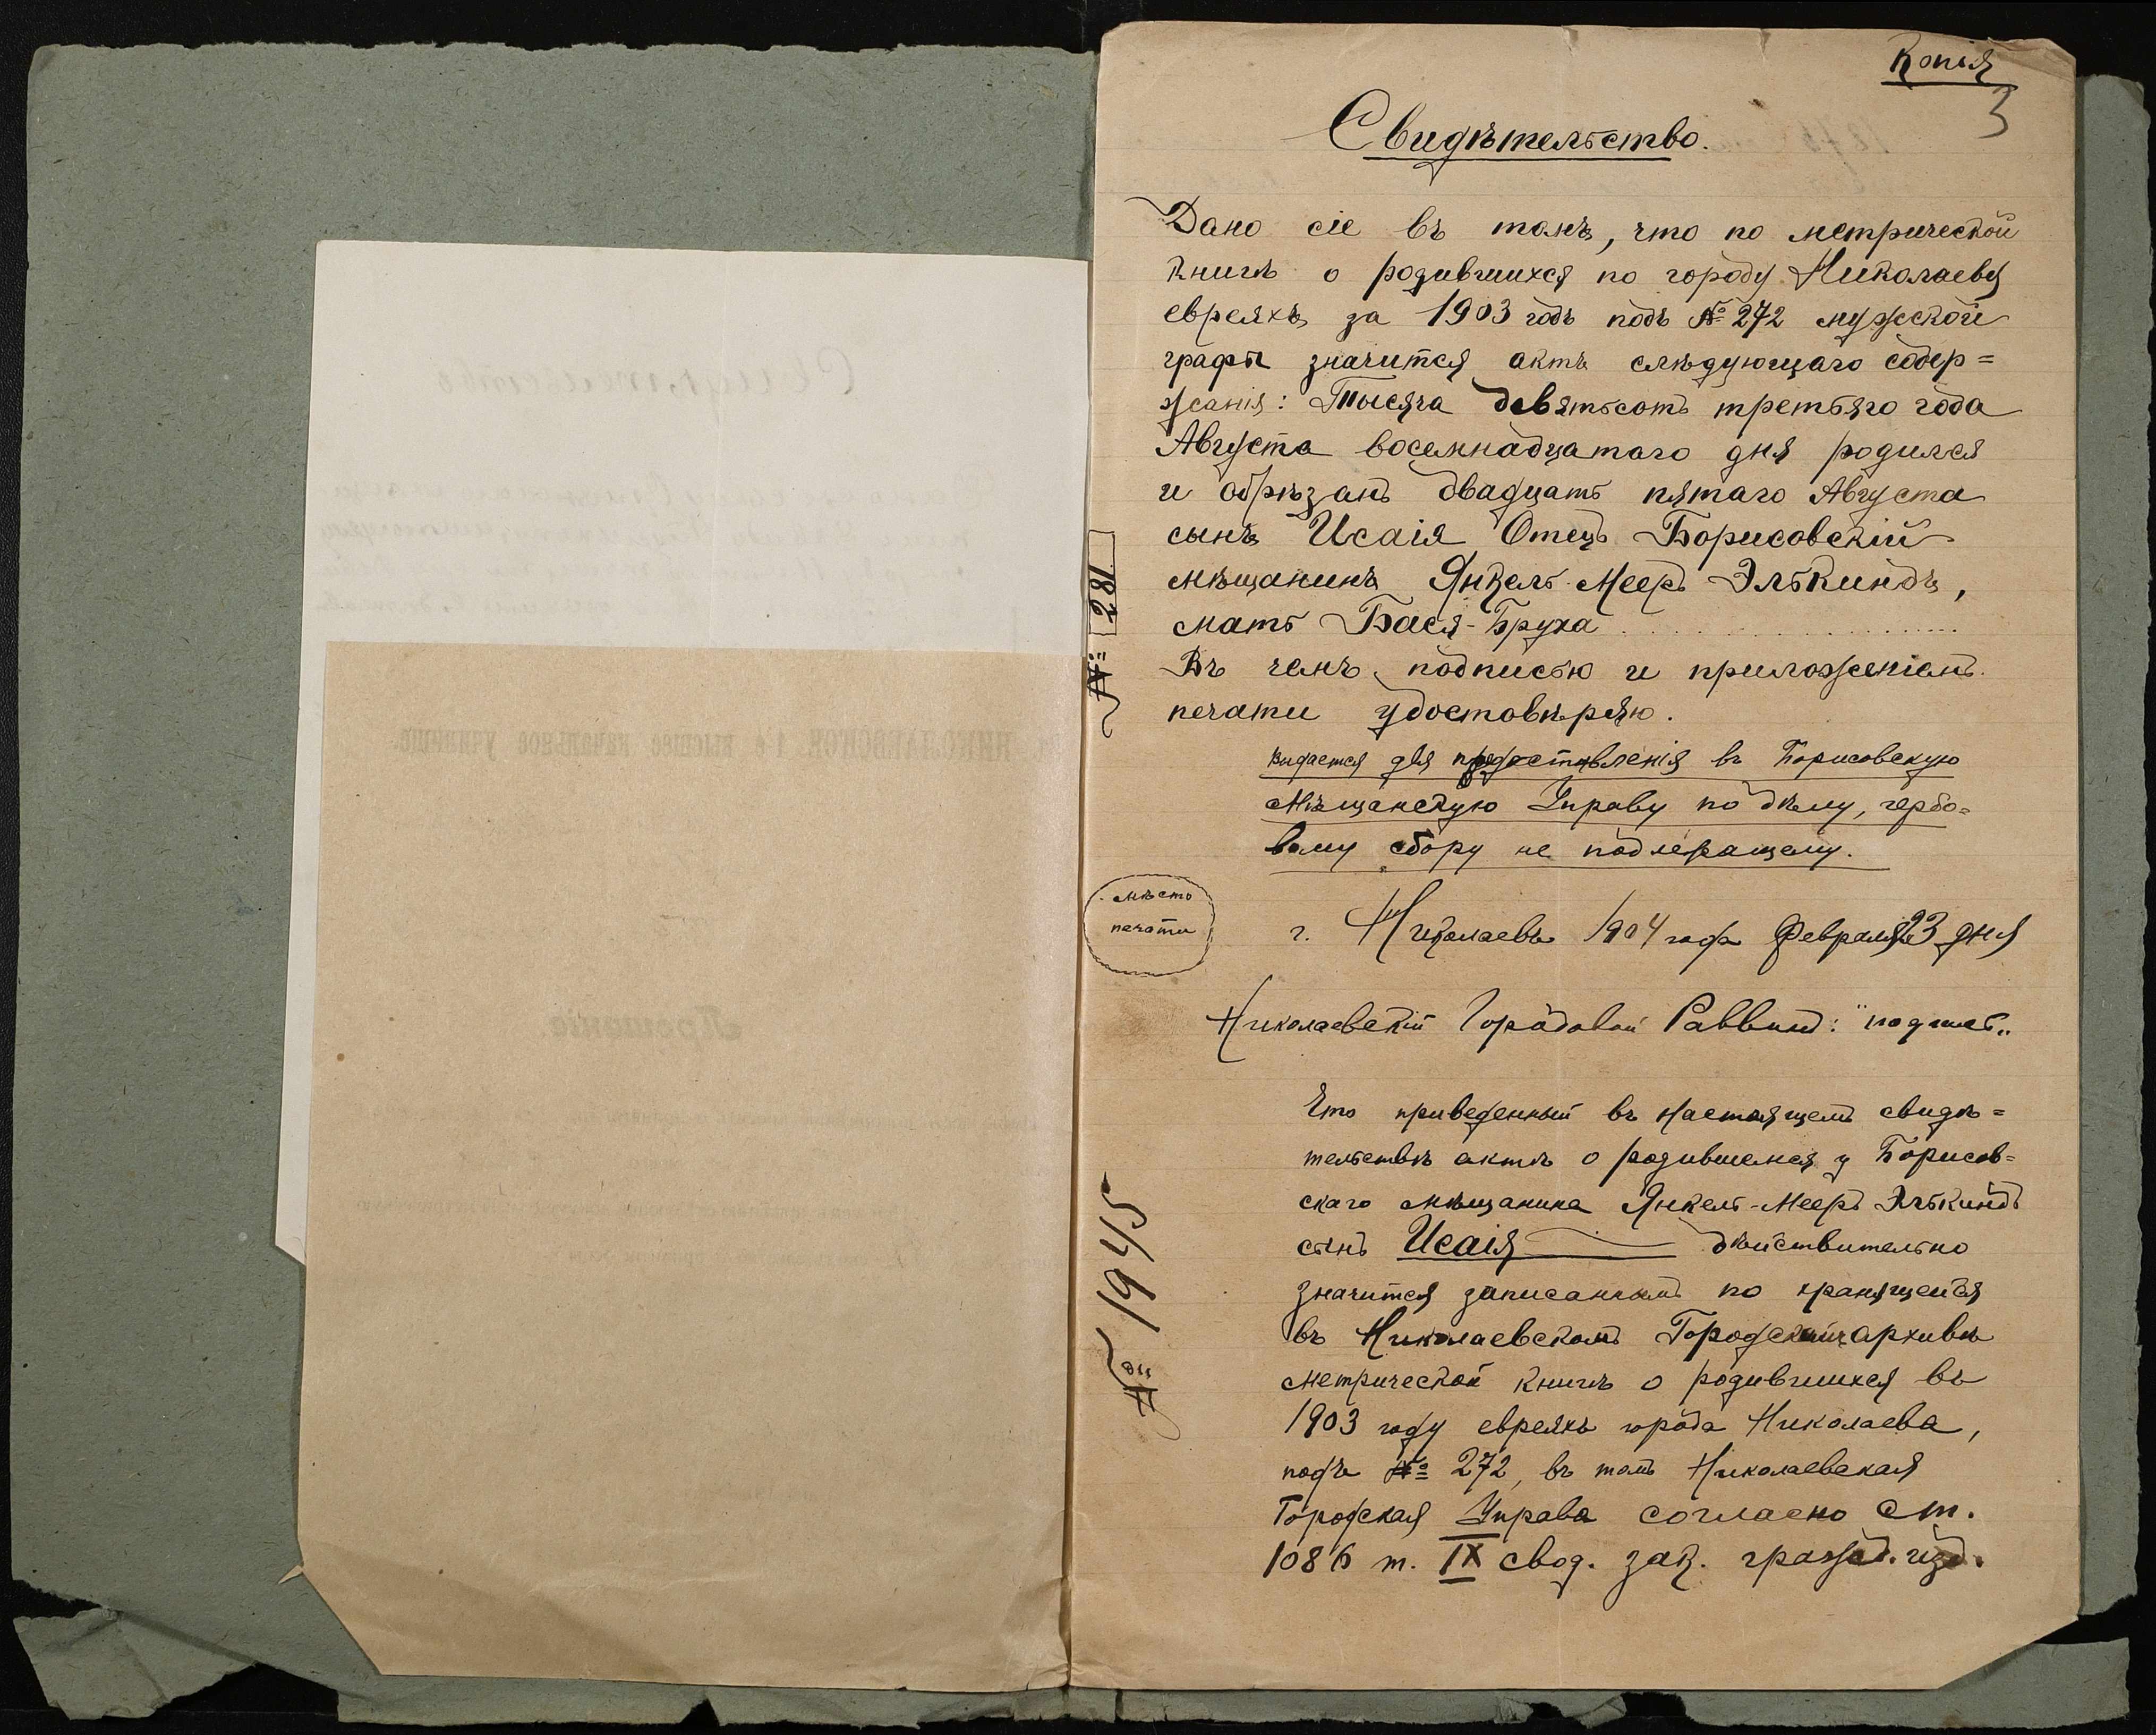 Копія
3
Свидѣтельство.
Дано сіе въ томъ, что по метрической
книгѣ о родившихся по городу Николаеву
евреяхъ за 1903 годъ подъ № 272 мужской
графы значится актъ слѣдующаго содер=
жанія: Тысяча девятьсотъ третьяго года
Августа восемнадцатаго дня родился
и обрѣзанъ двадцать пятаго Августа
сынъ Исаія Отецъ Борисовскій
мѣщанинъ Янкель-Мееръ Элькиндъ,
мать Бася-Бруха
Въ чемъ подписью и приложеніемъ
печати удостовѣряю.
№ 281
выдается для представленія въ Борисовскую
Мѣщанскую Управу по дѣлу, гербо=
вому сбору не подлежащему.
мѣсто
печати
г. Николаевъ 1904 года Февраля 23 дня
Николаевскій Городовой Раввинъ: "подпись"
№ 1945
Что приведенный въ настоящемъ свидѣ=
тельствѣ актъ о родившемся у Борисов=
скаго мѣщанина Янкель-Мееръ Элькиндъ
сынъ Исаія дѣйствительно
значится записаннымъ по хранящейся
въ Николаевскомъ Городскомъ архивѣ
метрической книгѣ о родившихся въ
1903 году евреяхъ города Николаева,
подъ № 272, въ томъ Николаевская
Городская Управа согласно ст.
1086 т. IX свод. зак. гражд. изд.